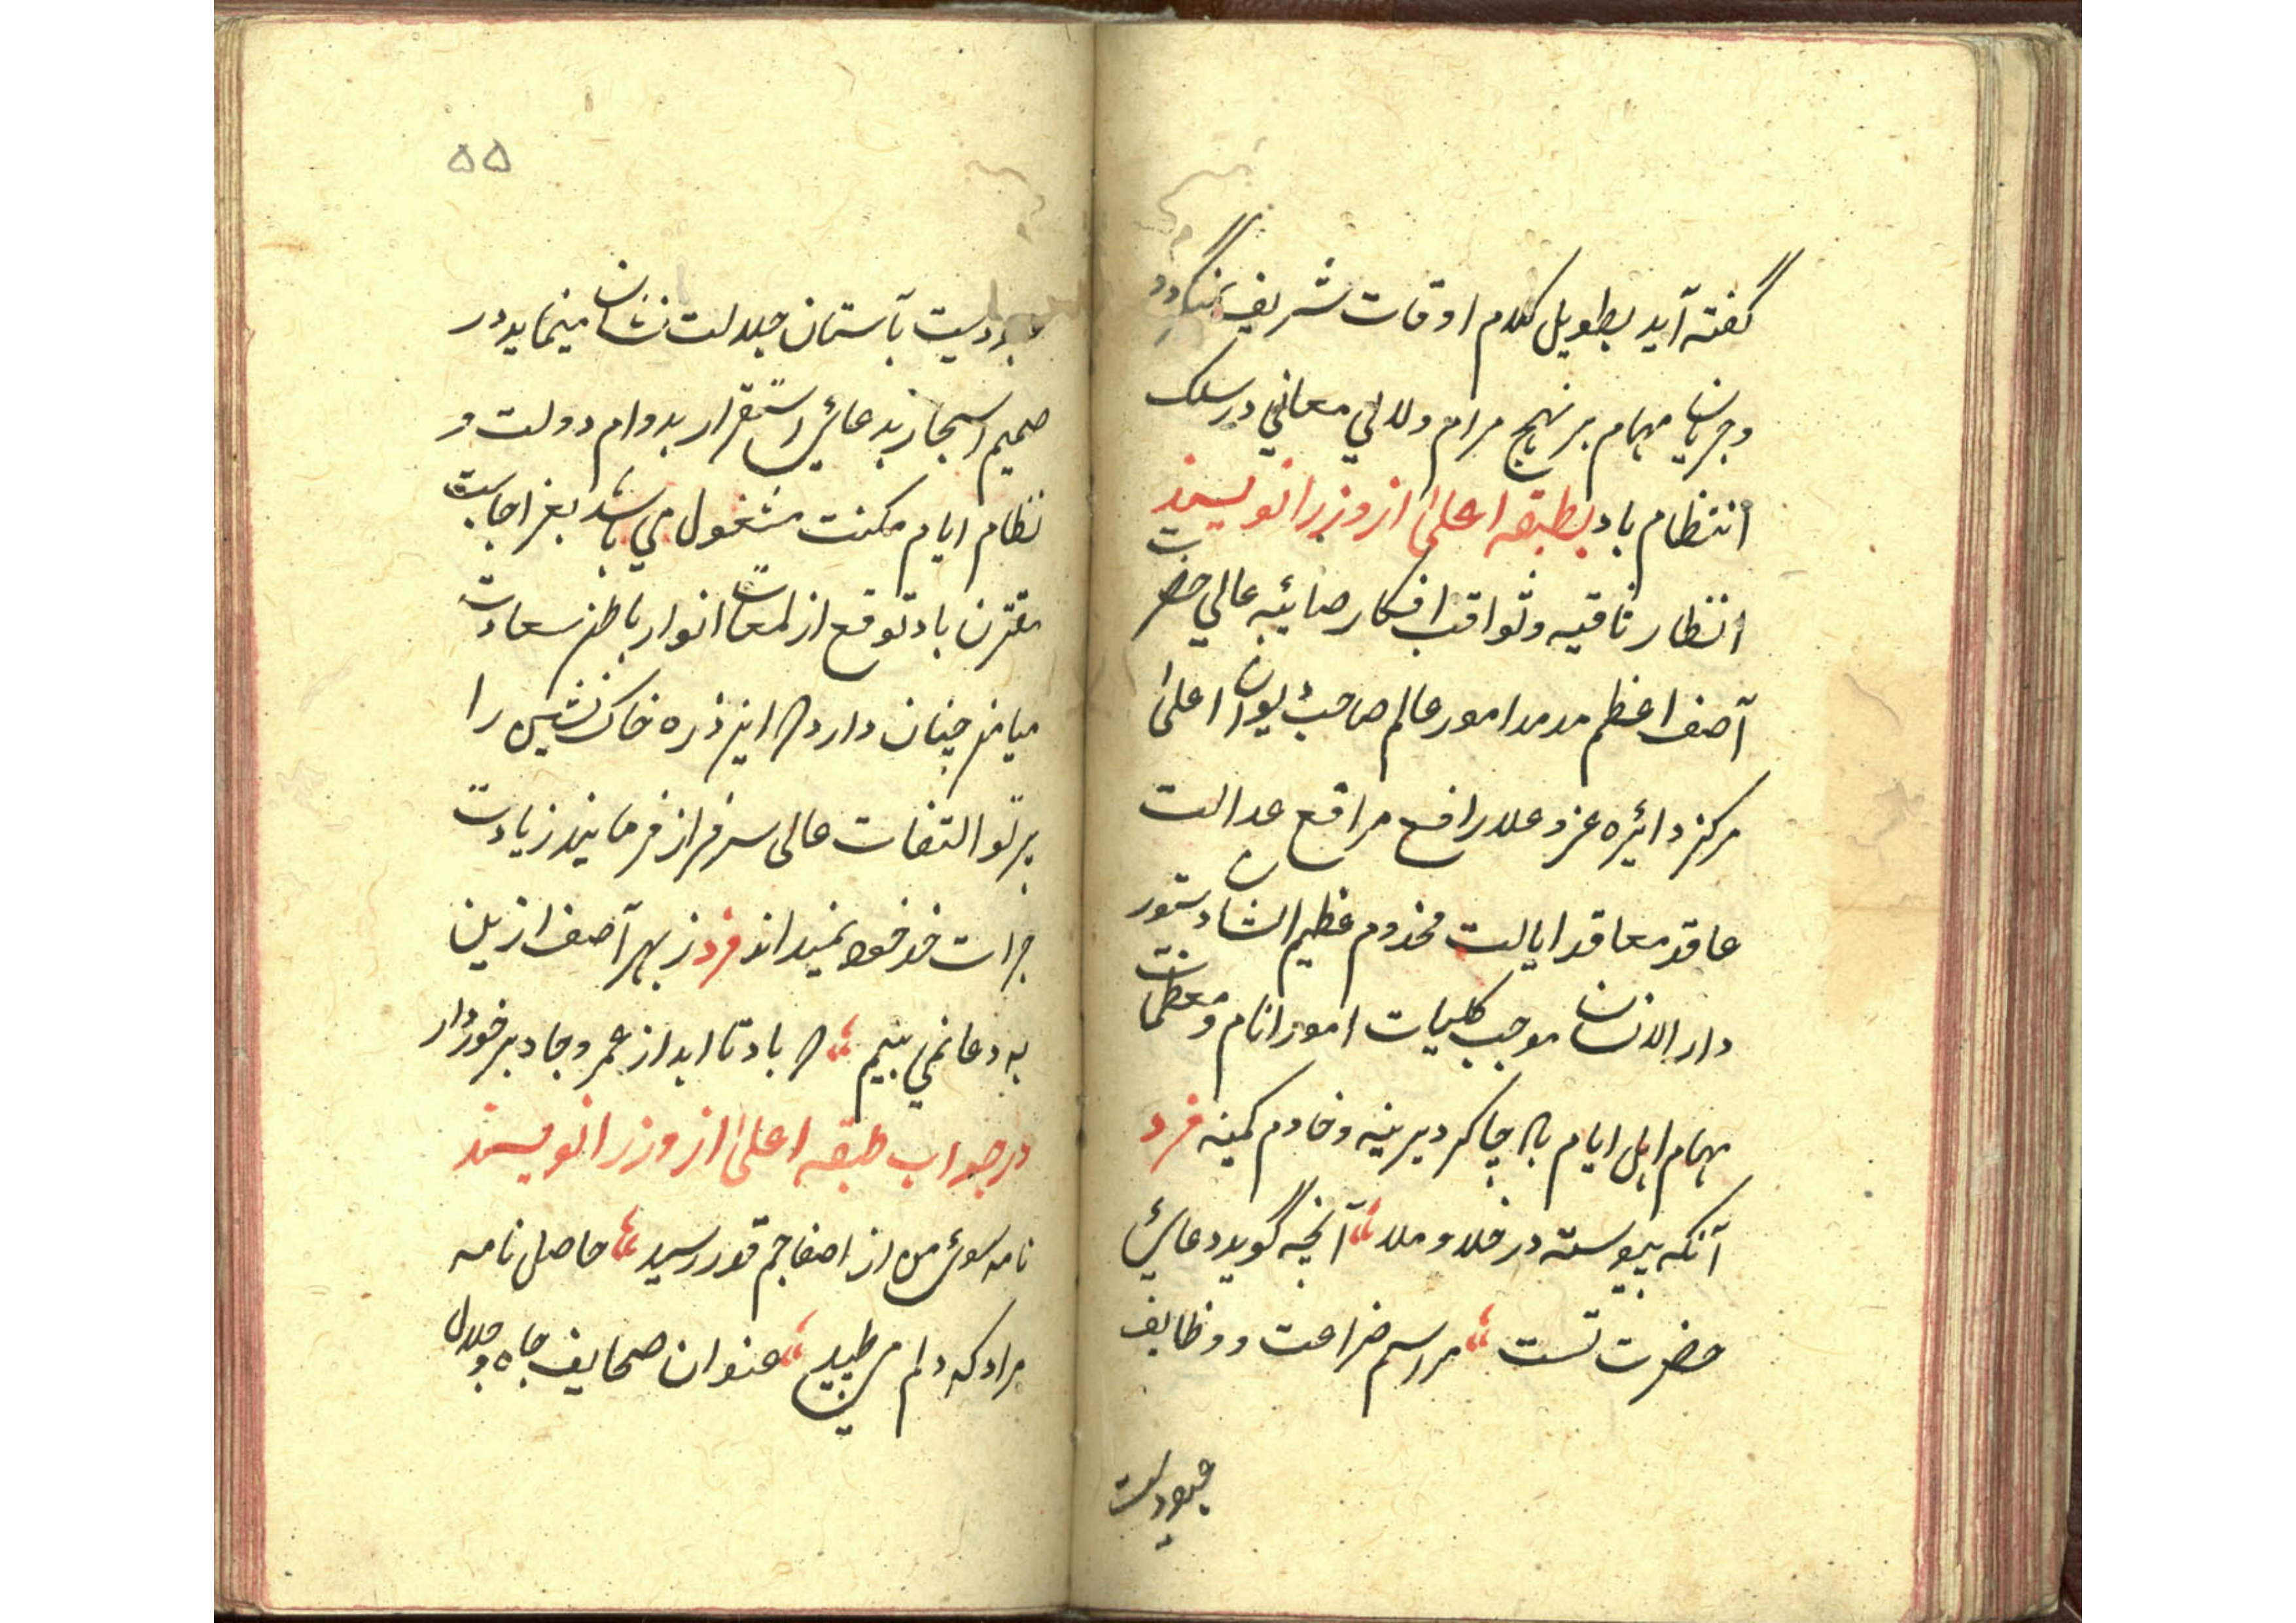 گفته آید بطویل کلام اوقات شریف
و جریان مهام بر نهج مرام و لالي معاني در سلک
انتظام باد بطبقه اعلی از وزرا نویسند
انتظار ثاقبه و ثواقب افکار صائبه عالي حضرت
آصف اعظم مدمدامور عالم صاحب دیوان اعلی
مرکز دائره عز و علا رافع مراقع عدالت
عاقد معاقد ایالت مخدوم عظیم الشان دستور
دار الانسان موجب کلیات امور انام و معظمات
مهام اهل ایام با چاکر دیرینه و خادم کمینه فرد
آنکه پیوسته در خلا و ملا آنچه گوید دعائی
حضرت تست مراسم ضراعت و وظایف
عبودیت
۵۵
عبودیت بآستان جلالت نشان مینماید و در
صمیم اسحار بدعائی استقرار بدوام دولت و
نظام ایام مکنت مشغول می باشد بعز اجابت
مقترن باد توقع از لمعات انوار باطن سعادت
میامن چنان دارد که این ذره خاک نشین را
پرتو التفات عالی سرفراز فرمایند زیادت
جرات خود نمیداند فرد ز بهر آصف ازین
به دعا نمی بینیم که باد تا ابد از عمر و جاه برخوردار
در جواب طبقه اعلی از وزرا نویسند
نامه سوئی من از اصف جم قدر رسید حاصل نامه
مراد که دلم می طپید عنوان صحایف جاه و جلال